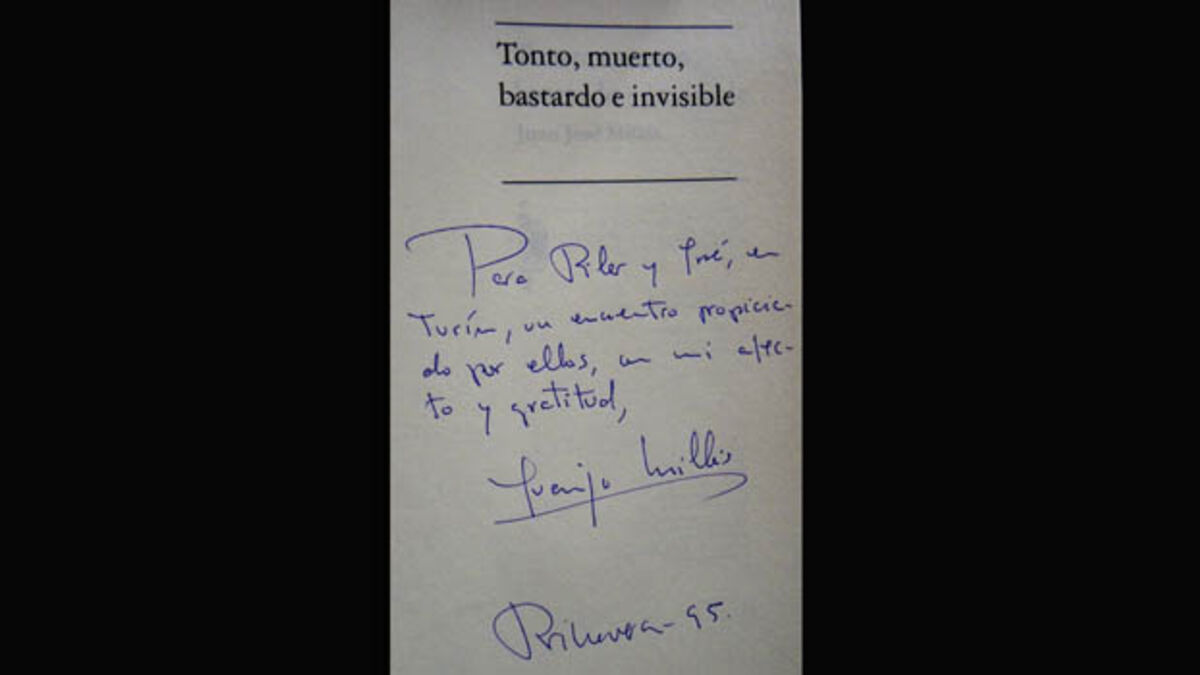 Tonto, muerto,
bastardo e invisible
Juan José Millás
Para Pilar y José, en
Turín, un encuentro propicia-
do por ellos, con mi afec-
to y gratitud,
Juanjo Millás
Primavera-95.